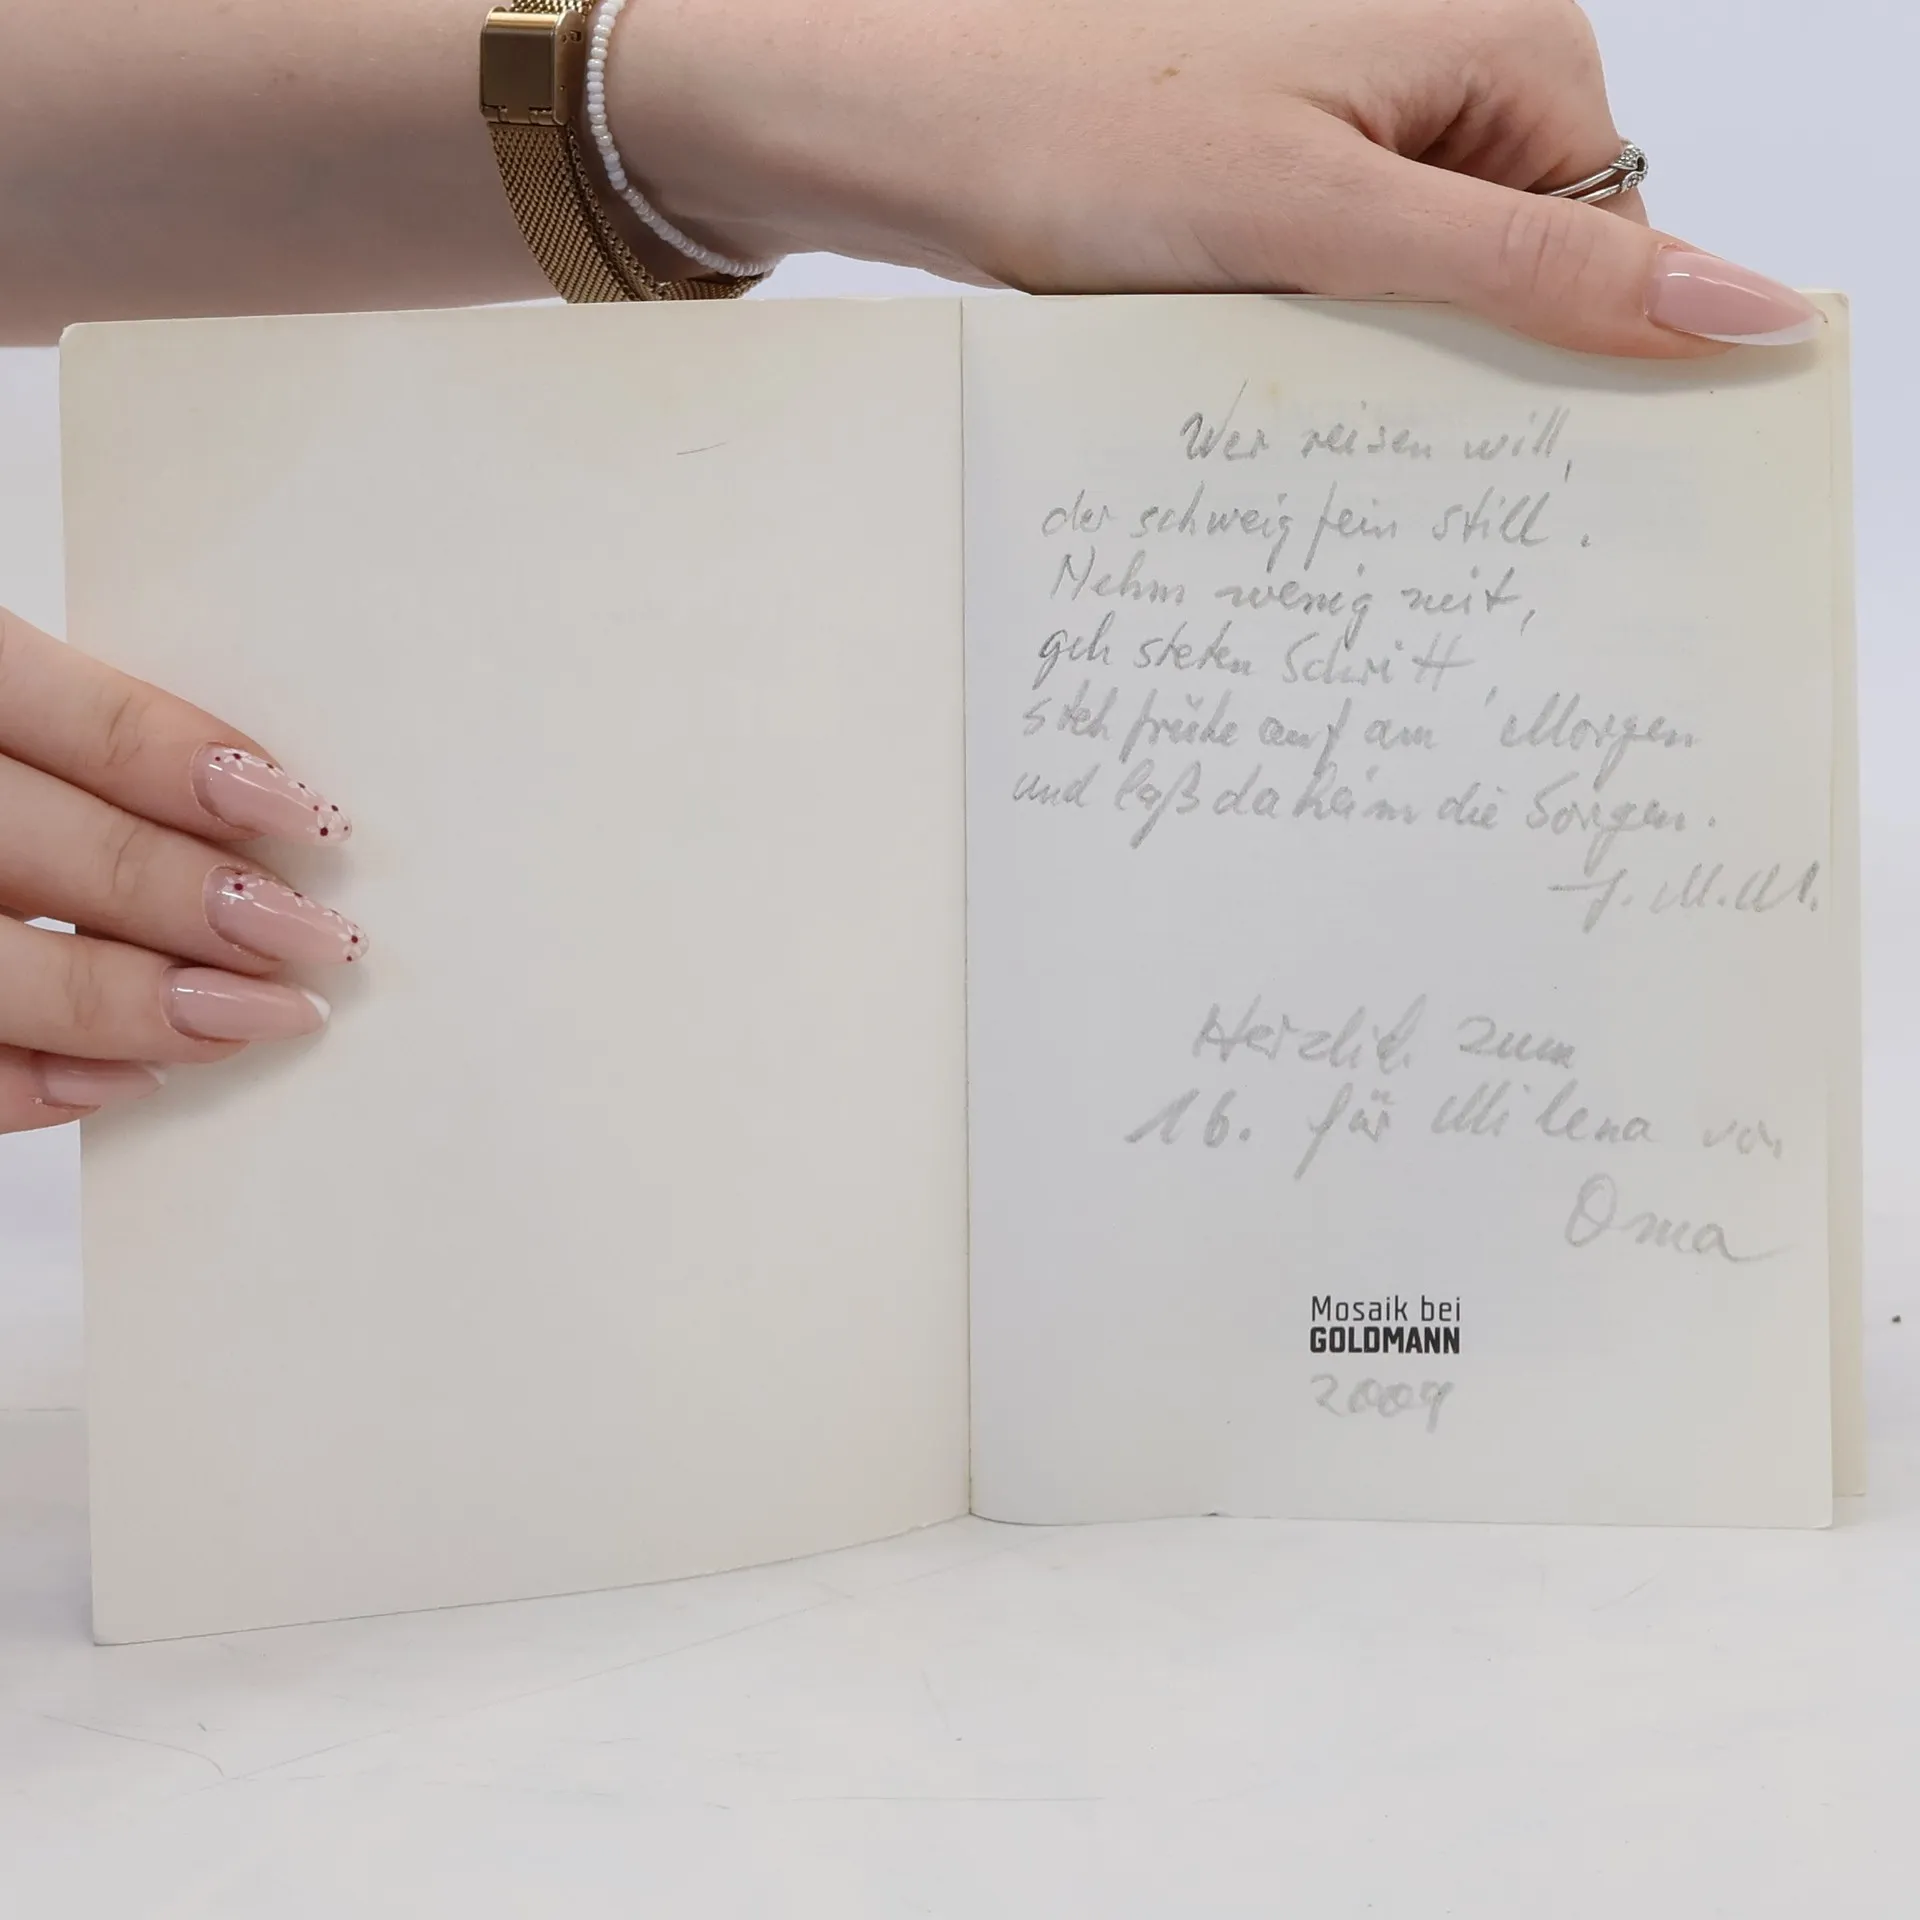 Wer reisen will,
der schweig fein still.
Nehm wenig mit,
geh steten Schritt,
steh frühe auf am Morgen
und laß daheim die Sorgen.
Herzlich zum
16. für Milena von
Oma
Mosaik bei
GOLDMANN
2009